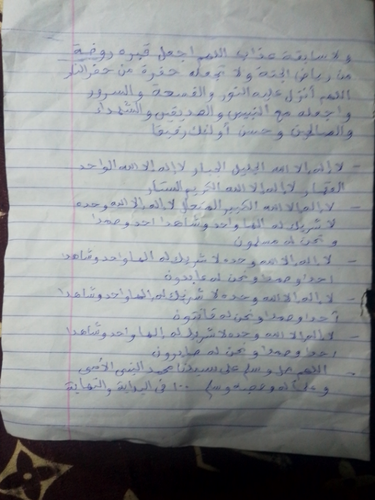 ولا سابقة عذاب اللهم اجعل قبره روضة
من رياض الجنة ولا تجعله حفرة من حفر النار
اللهم أنزل عليه النور والفسحة والسرور
واجعله مع النبيين والصديقين والشهداء
والصالحين وحسن أولئك رفيقا
- لا إله الا الله الجليل الجبار لا إله الا الله الواحد
القهار لا إله الا الله الكريم الستار
- لا إله الا الله الكبير المتعال لا إله الا الله وحده
لا شريك له الها واحد وشاهدا احد وصمدا
ونحن له مسلمون
- لا إله الا الله وحده لا شريك له الها واحد وشاهدا
احدا وصمدا ونحن له عابدون
- لا إله الا الله وحده لا شريك له الها واحد وشاهدا
أحدا وصمدا ونحن له قانتون
- لا إله الا الله وحده لا شريك له الها واحد وشاهدا
احد وصمدا ونحن له صابرون
- اللهم صل وسلم على سيدنا محمد النبي الأمي
وعلى اله وصحبه وسلم ١٠٠ في البداية والنهاية